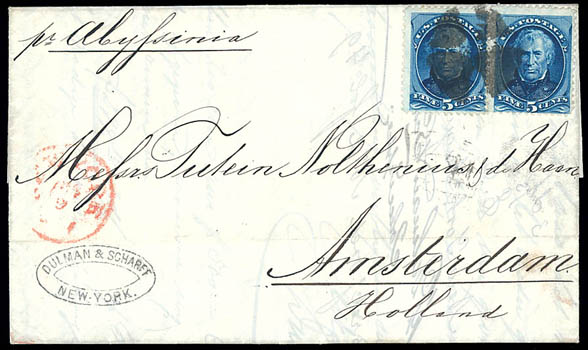 pr Abyssinia
U.S. POSTAGE
FIVE 5 CENTS
U.S. POSTAGE
FIVE 5 CENTS
Messrs Tutein Nolthenius & de Haan
Amsterdam
Holland
DULMAN & SCHARFF
NEW-YORK.